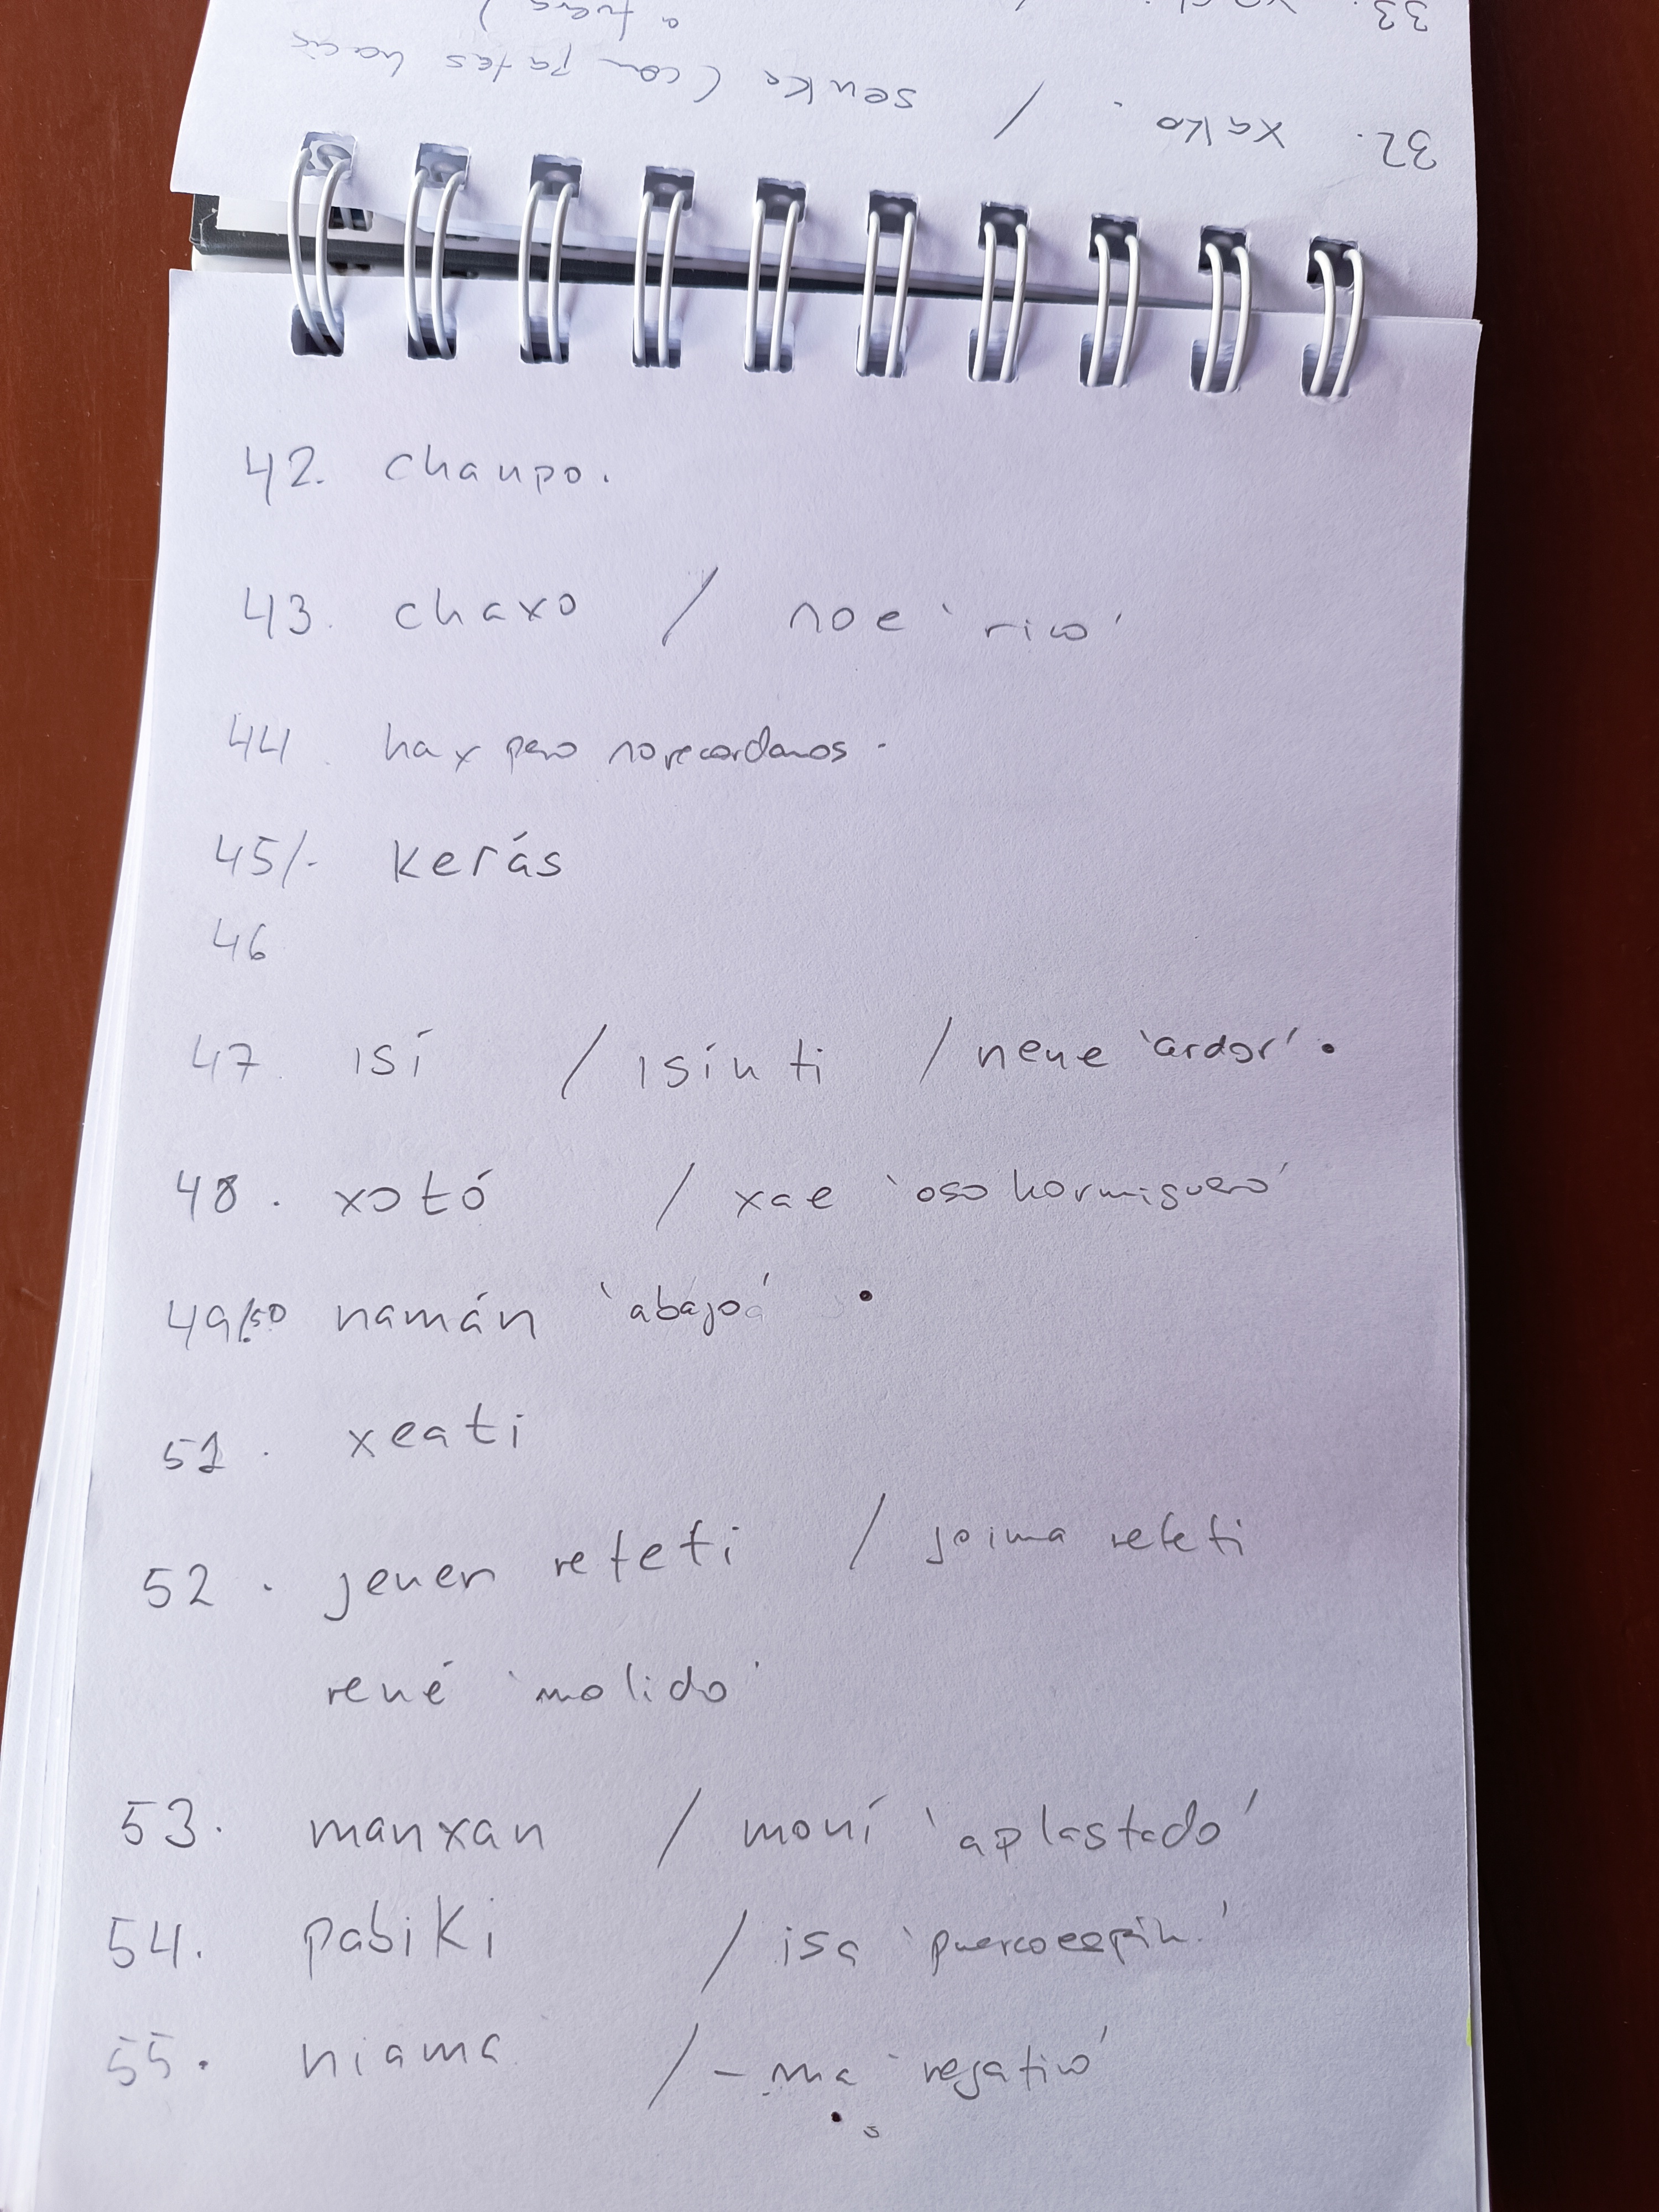 33.
a fuera)
32. xako. / senka (con patas hacia
42. chaupo.
43. chaxo / noe 'rico'
44. hay pero no recordamos.
45/. kerás
46
47. isí / isínti / neue 'ardor'.
48. xotó / xae 'oso hormiguero'
49/50 namán 'abajo'
51. xeati
52. jenen reteti / joima reteti
rené 'molido'
53. manxan / moní 'aplastado'
54. pabiki / isa 'puercoespín.'
55. niama / -ma 'negativo'